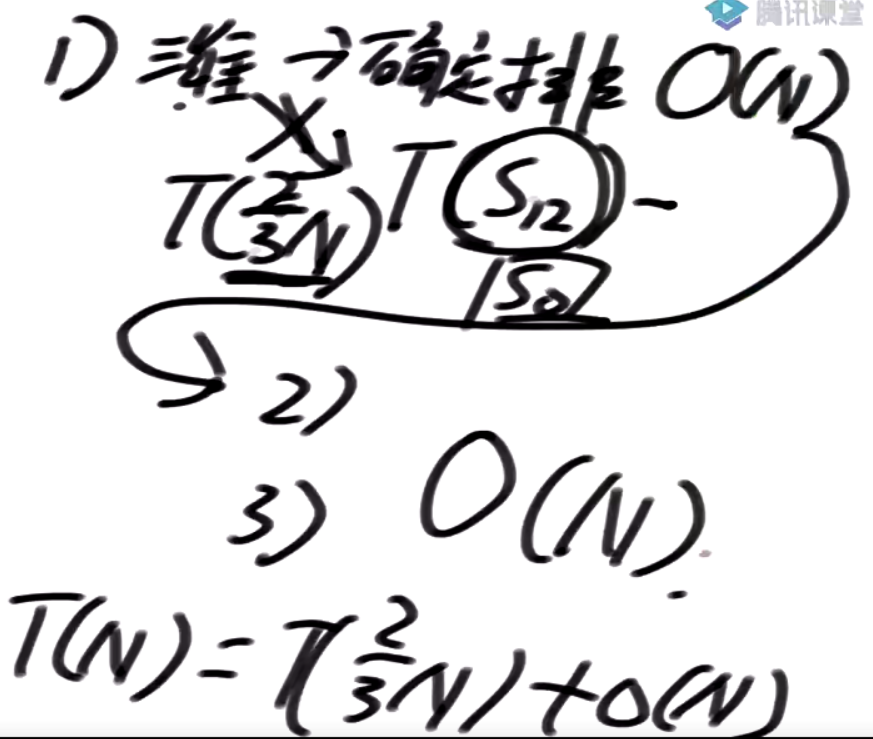 腾讯课堂
1) 三维 → 确定排 O(N)
T(2/3N) T(S12) -
S0
2)
3) O(N)
T(N) = T(2/3N) + O(N)